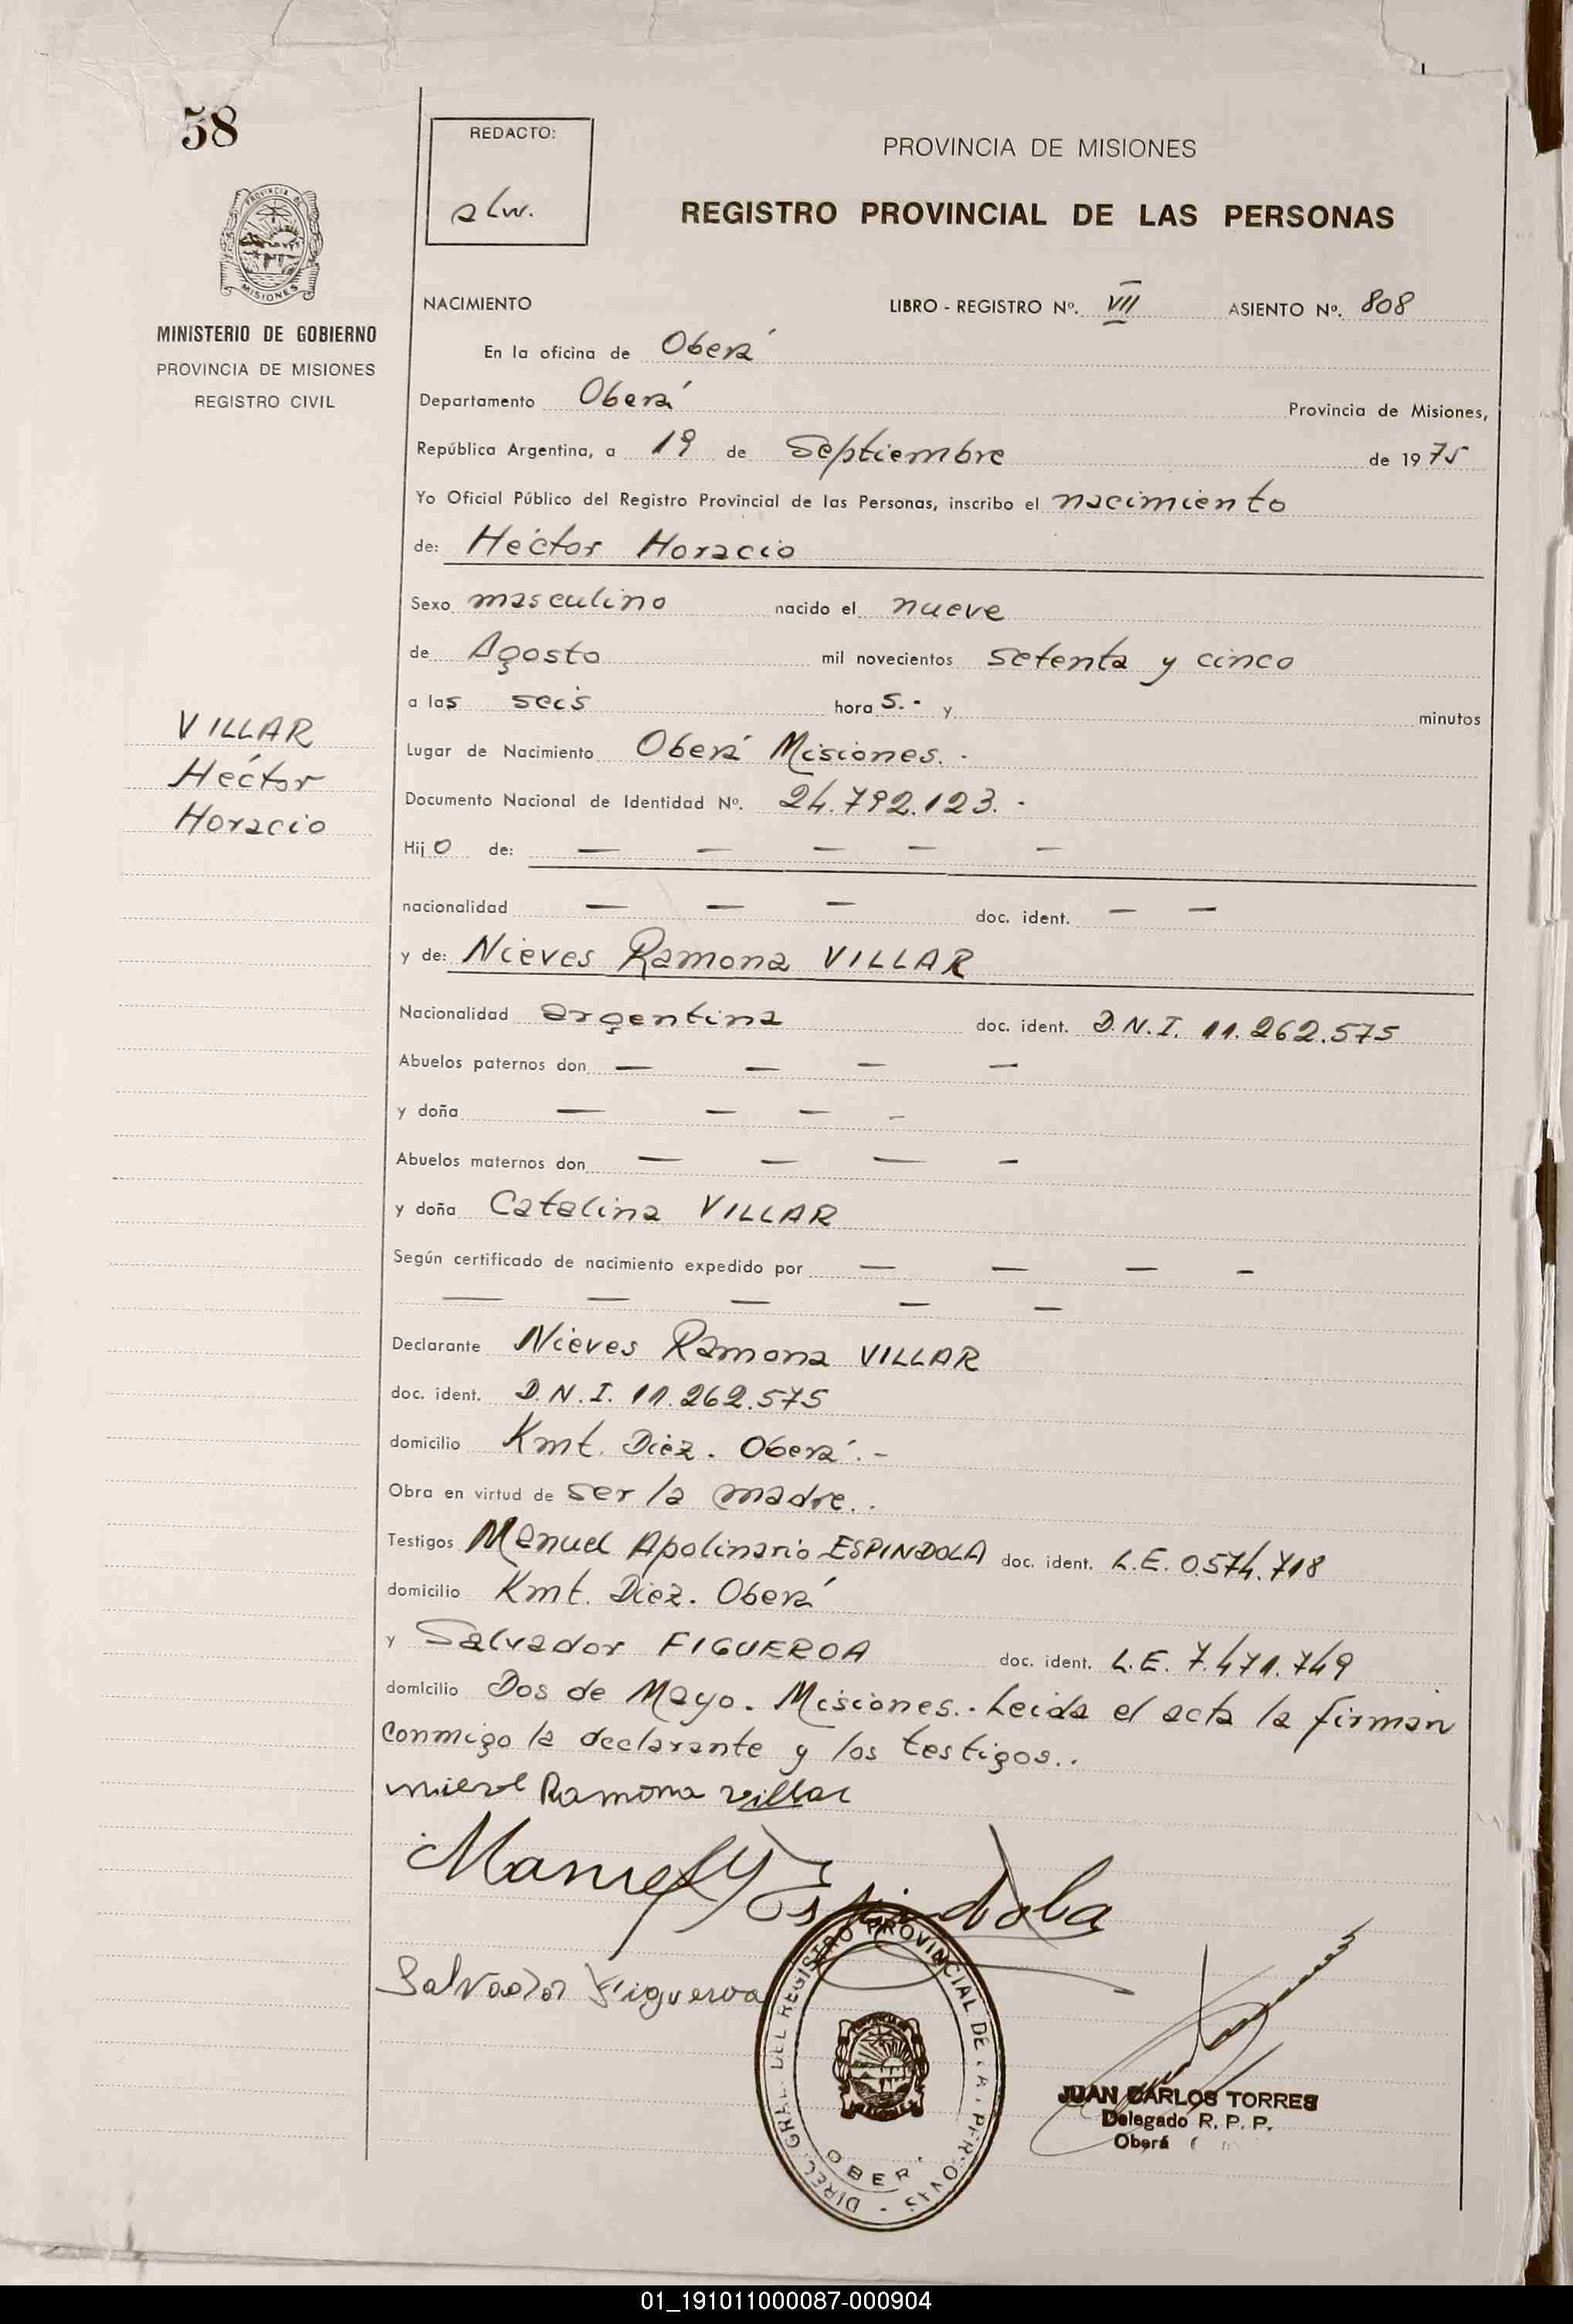 58
REDACTO:
alw.
PROVINCIA DE MISIONES
REGISTRO PROVINCIAL DE LAS PERSONAS
PROVINCIA DE
MISIONES
MINISTERIO DE GOBIERNO
PROVINCIA DE MISIONES
REGISTRO CIVIL
NACIMIENTO LIBRO - REGISTRO Nº. VII ASIENTO Nº. 808
En la oficina de Oberá
Departamento Oberá Provincia de Misiones,
República Argentina, a 19 de Septiembre de 1975
Yo Oficial Público del Registro Provincial de las Personas, inscribo el nacimiento
de: Héctor Horacio
Sexo masculino nacido el nueve
de Agosto mil novecientos setenta y cinco
a las seis hora s.- y minutos
VILLAR
Héctor
Horacio
Lugar de Nacimiento Oberá Misiones.-
Documento Nacional de Identidad Nº. 24.792.123.-
Hijo de: — — — — —
nacionalidad — — — doc. ident. — —
y de: Nieves Ramona VILLAR
Nacionalidad argentina doc. ident. D.N.I. 11.262.575
Abuelos paternos don — — — —
y doña — — — -
Abuelos maternos don — — — —
y doña Catalina VILLAR
Según certificado de nacimiento expedido por — — — -
— — — — —
Declarante Nieves Ramona VILLAR
doc. ident. D.N.I. 11.262.575
domicilio Kmt. Diez. Oberá.-
Obra en virtud de ser la madre..
Testigos Manuel Apolinario ESPINDOLA doc. ident. L.E. 0.574.718
domicilio Kmt. Diez. Oberá
y Salvador FIGUEROA doc. ident. L.E. 7.471.749
domicilio Dos de Mayo. Misiones.. Leida el acta la firman
conmigo la declarante y los testigos..
Ramona Villar
Manuel Espindola
Salvador Figueroa
DIREC. GRAL. DEL REGISTRO PROVINCIAL DE
OBER
JUAN CARLOS TORRES
Delegado R. P. P.
Oberá
01_191011000087-000904